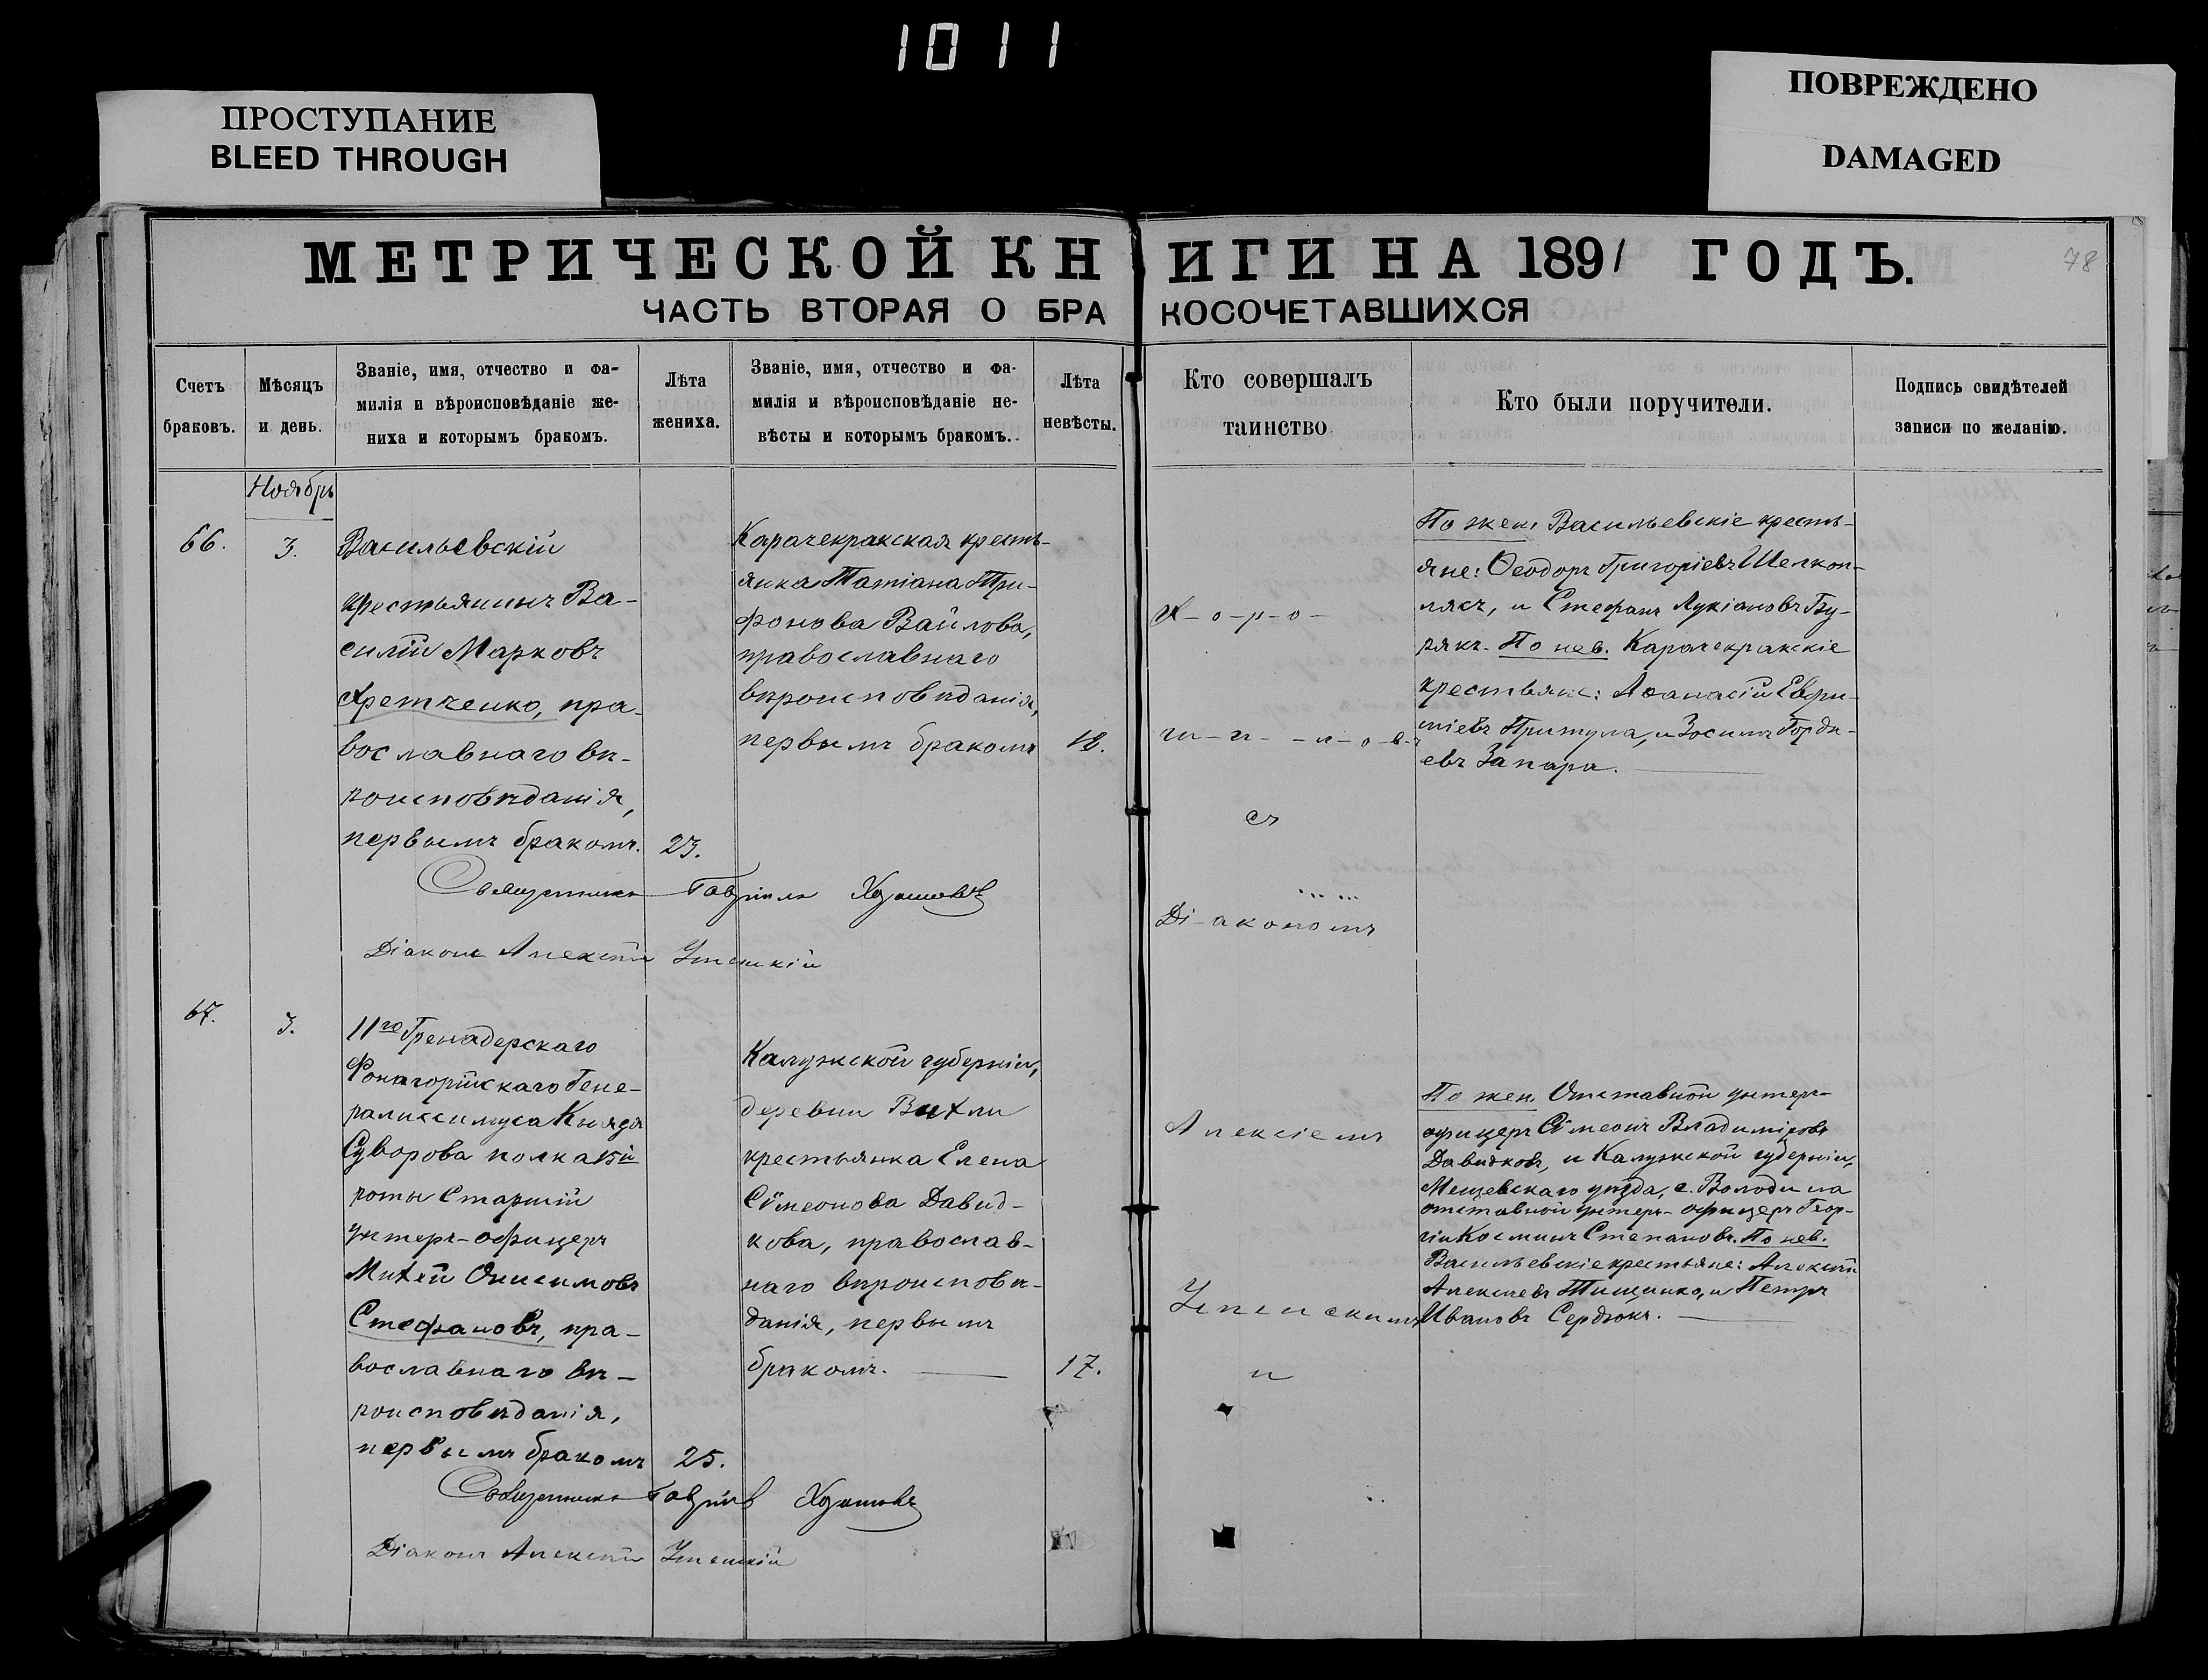 1011
ПРОСТУПАНИЕ
BLEED THROUGH
ПОВРЕЖДЕНО
DAMAGED
МЕТРИЧЕСКОЙ КНИГИ НА 1891 ГОДЪ.
78
ЧАСТЬ ВТОРАЯ О БРАКОСОЧЕТАВШИХСЯ
Счетъ
браковъ.
Мѣсяцъ
и день.
Званіе, имя, отчество и фа-
милія и вѣроисповѣданіе же-
ниха и которымъ бракомъ.
Лѣта
жениха.
Званіе, имя, отчество и фа-
милія и вѣроисповѣданіе не-
вѣсты и которымъ бракомъ.
Лѣта
невѣсты.
Кто совершалъ
таинство
Кто были поручители.
Подпись свидѣтелей
записи по желанію.
Ноябрь
66.
3.
Васильевскій
крестьянинъ Ва-
силій Марковъ
Хретченко, пра-
вославнаго вѣ-
роисповѣданія,
первымъ бракомъ.
23.
Карачекракская кресть-
янка Татіана Три-
фонова Вайлова,
православнаго
вѣроисповѣданія,
первымъ бракомъ
18.
По жен. Васильевскіе кресть-
яне: Ѳеодоръ Григоріевъ Шелкоп-
лясъ, и Стефанъ Лукіановъ Бу-
рякъ. По нев. Карачекракскіе
крестьяне: Аѳанасій Евфи-
міевъ Притула, и Зосимъ Горді-
евъ Запара.
съ
Ді-акономъ
Священникъ Гавріилъ
Діаконъ Алексій Успенскій
67.
3.
11го Гренадерскаго
Фонагорійскаго Гене-
ралиссимуса Князя
Суворова полка 15й
роты Старшій
унтеръ-офицеръ
Михей Онисимовъ
Стефановъ, пра-
вославнаго вѣ-
роисповѣданія,
первымъ бракомъ
25.
Калужской губерніи,
деревни Вихли
крестьянка Елена
Сѵмеонова Давид-
кова, православ-
наго вѣроисповѣ-
данія, первымъ
бракомъ.
17.
Алексіемъ
Успенскимъ
и
По жен. Отставной унтеръ-
офицеръ Сѵмеонъ Владиміровъ
Давидковъ, и Калужской губерніи,
Мещевскаго уѣзда, с.
отставной унтеръ-офицеръ Геор-
гій Косминъ Степановъ. По нев.
Васильевскіе крестьяне: Алексій
Алексіевъ Тищенко, и Петръ
Ивановъ Сердюкъ.
Священникъ Гавріилъ
Діаконъ Алексій Успенскій